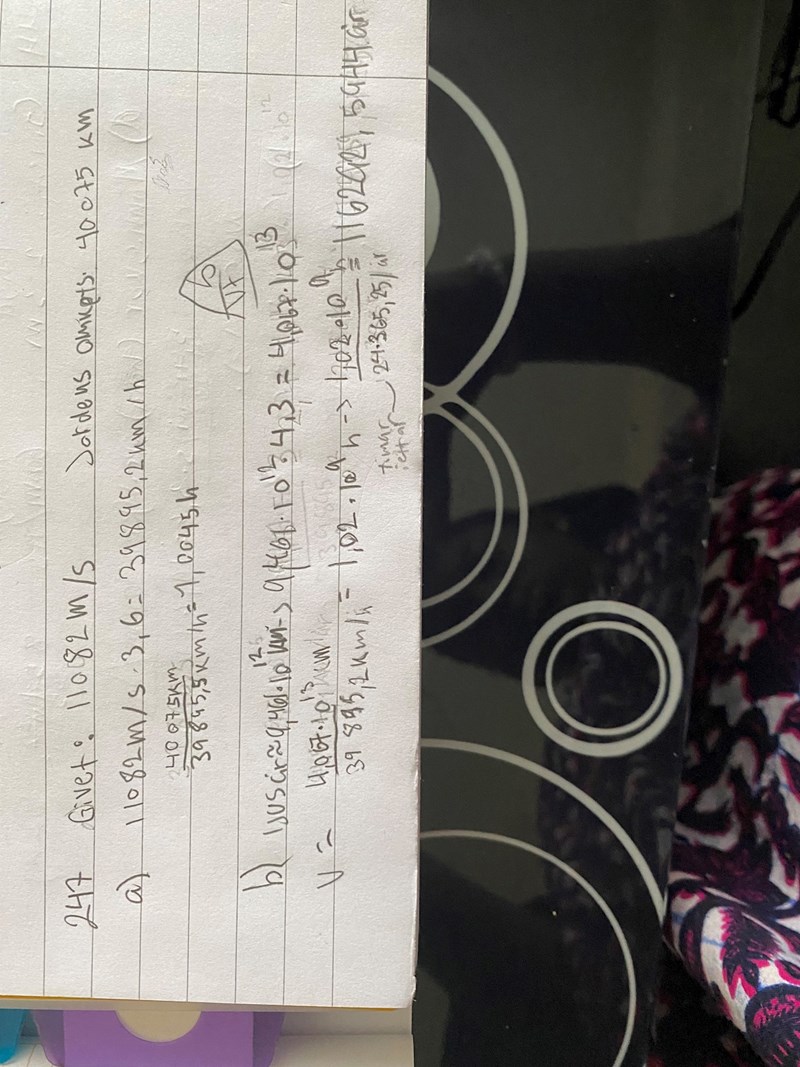 247 Givet: 11082 m/s Jordens omkrets 40 075 km
a) 11082 m/s · 3,6 = 39895,2 km/h
40 075 km
39895,5 km/h = 1,0045 h
s
v t
b) 1 ljusår ≈ 9,461·10¹² km → 9,461·10¹² · 4,3 = 4,067·10¹³
v = 4,067·10¹³ km
39 895,2 km/h = 1,02·10⁹ h → 1,02·10⁹ h
24·365,25/år = 116 , 5944 år
timmar